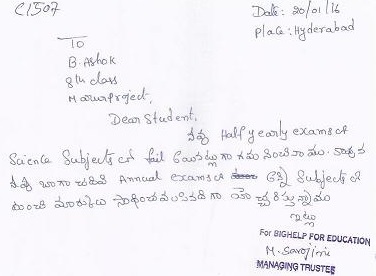 C1507
Date: 20/01/16
Place: Hyderabad
To
B. Ashok
8th class
Marur Project,
Dear Student,
నీవు Half yearly exams లో
Science Subjects లో fail అయినట్లుగా గమనించినాము. కావున
నీవు బాగా చదివి Annual exams లో అన్ని Subjects లో
మంచి మార్కులు సాధించవలసినదిగా హెచ్చరిస్తున్నాము
ఇట్లు
For BIGHELP FOR EDUCATION
M. Sarojini
MANAGING TRUSTEE